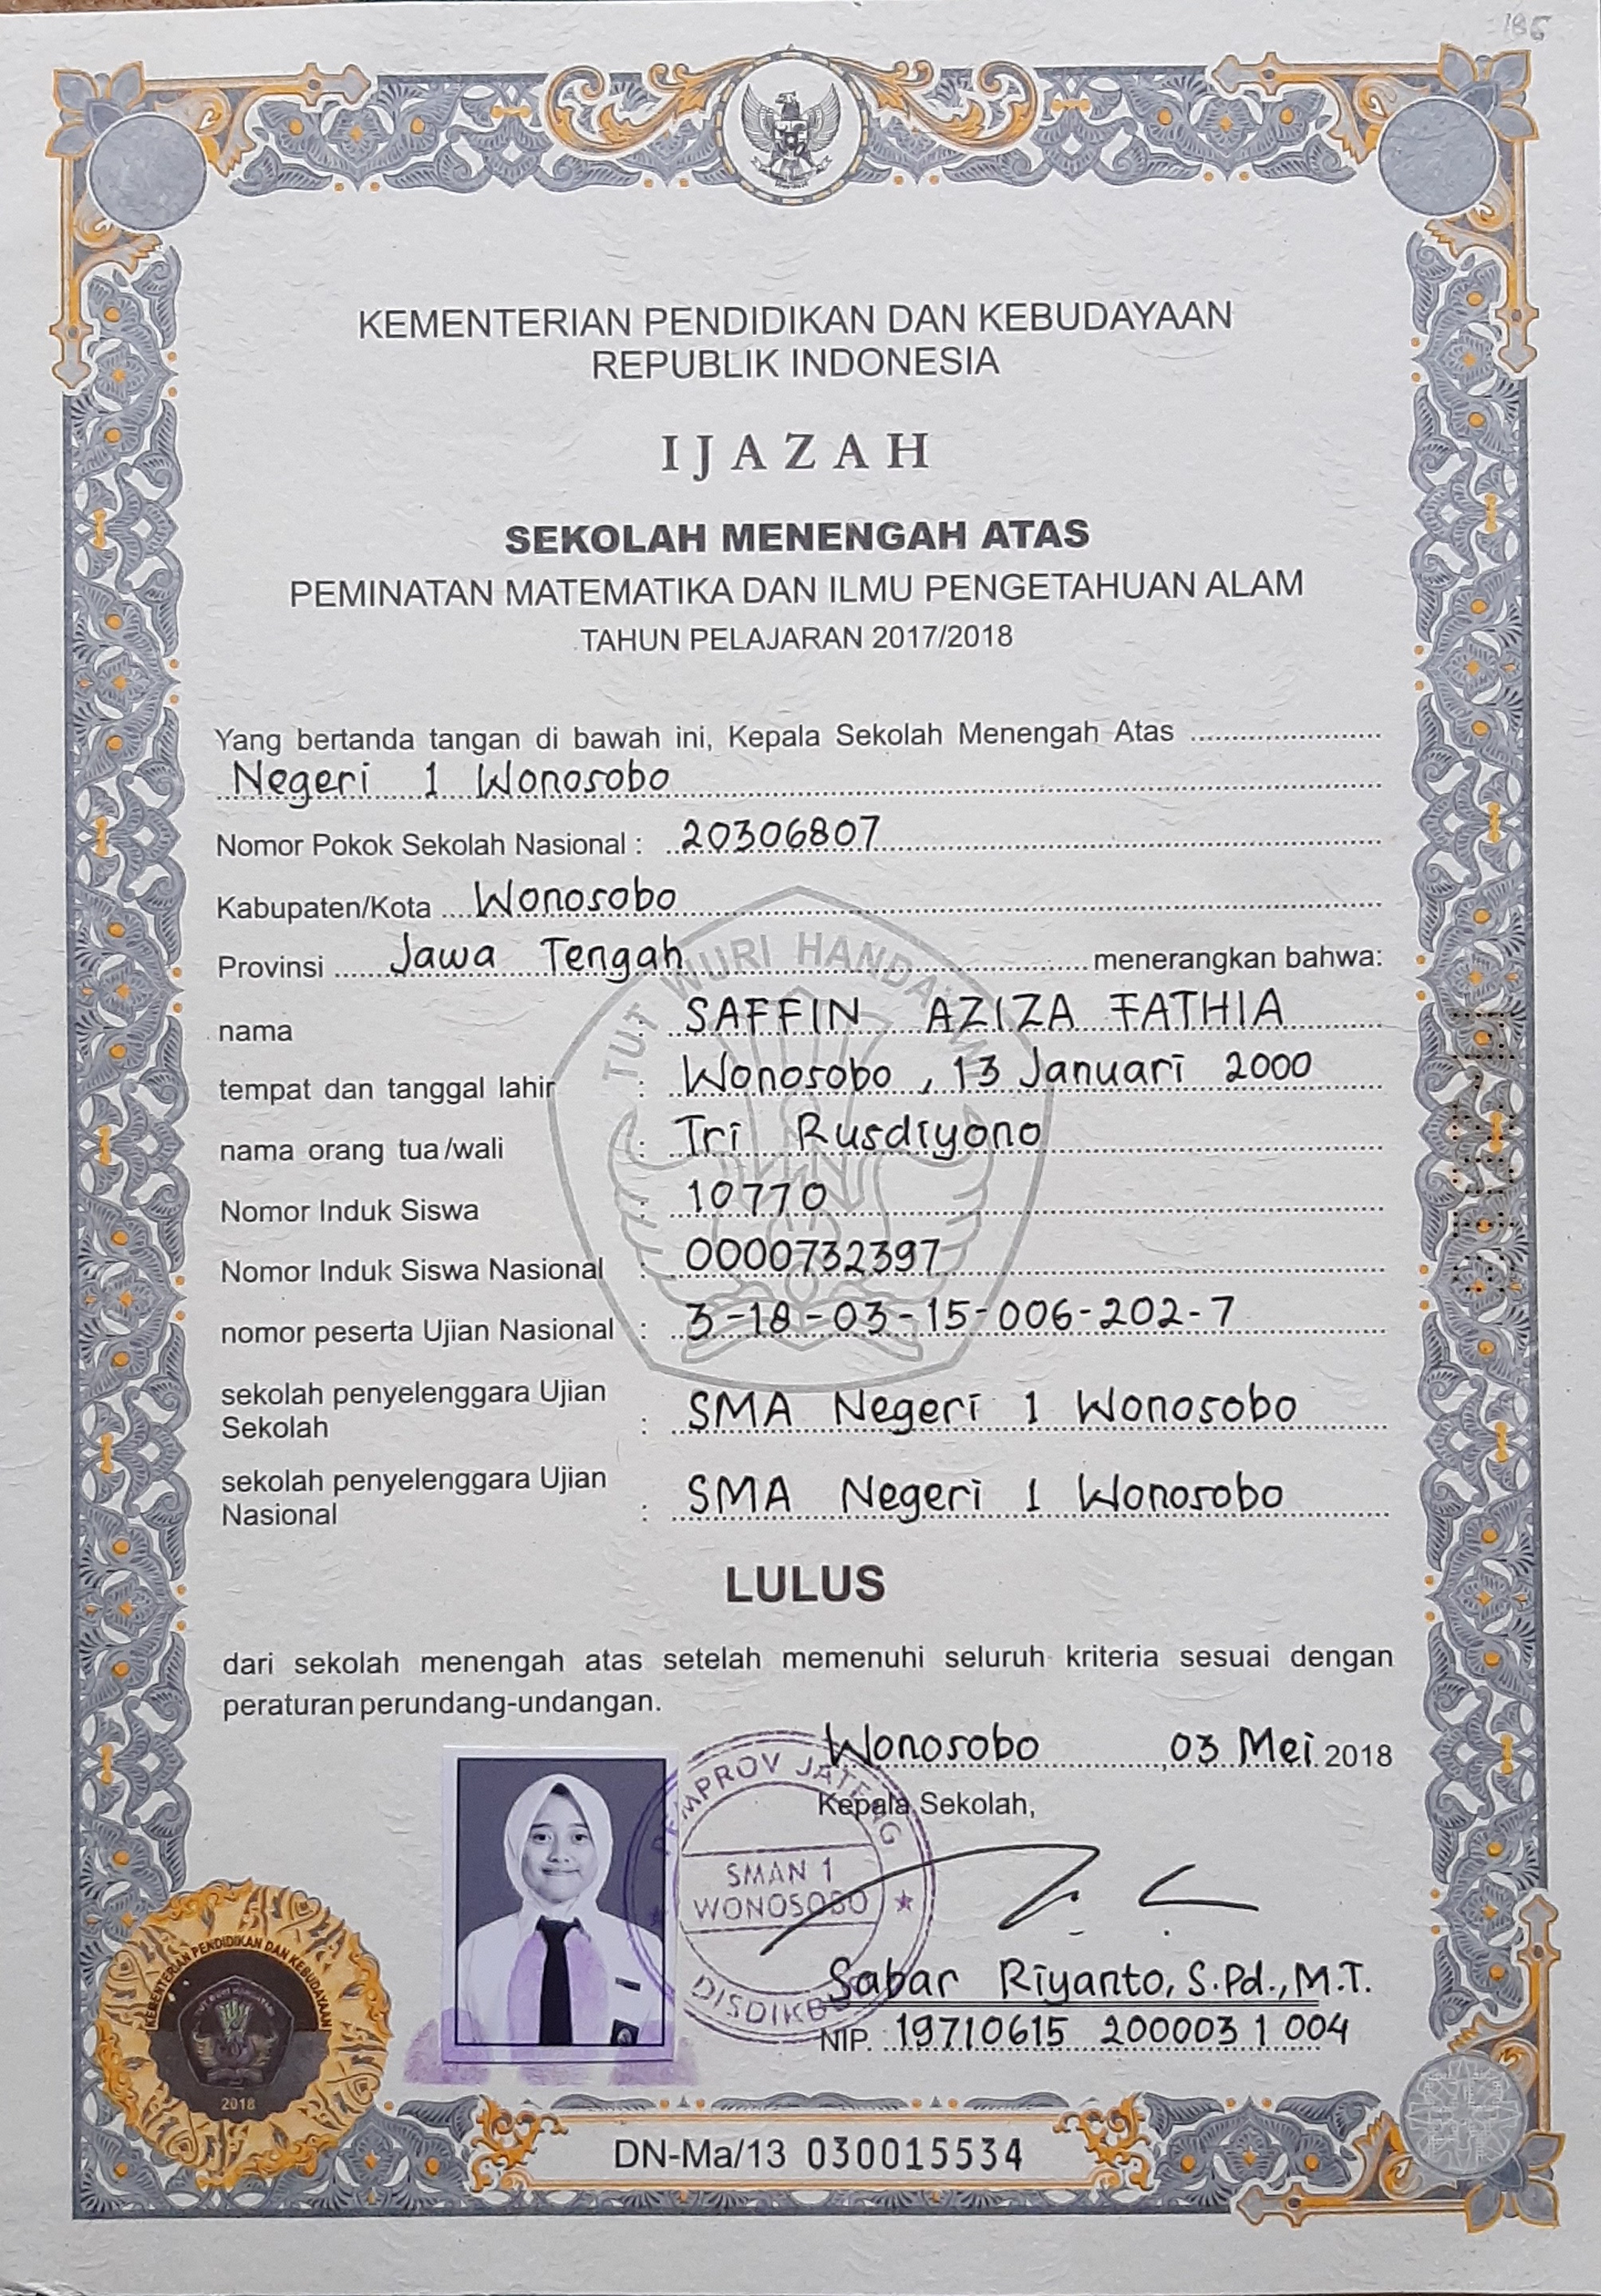 KEMENTERIAN PENDIDIKAN DAN KEBUDAYAAN
REPUBLIK INDONESIA
IJAZAH
SEKOLAH MENENGAH ATAS
PEMINATAN MATEMATIKA DAN ILMU PENGETAHUAN ALAM
TAHUN PELAJARAN 2017/2018
Yang bertanda tangan di bawah ini, Kepala Sekolah Menengah Atas
Negeri 1 Wonosobo
Nomor Pokok Sekolah Nasional : 20306807
Kabupaten/Kota Wonosobo
Provinsi Jawa Tengah menerangkan bahwa:
nama : SAFFIN AZIZA FATHIA
tempat dan tanggal lahir : Wonosobo, 13 Januari 2000
nama orang tua/wali : Tri Rusdiyono
Nomor Induk Siswa : 10770
Nomor Induk Siswa Nasional : 0000732397
nomor peserta Ujian Nasional : 3-18-03-15-006-202-7
sekolah penyelenggara Ujian : SMA Negeri 1 Wonosobo
Sekolah
sekolah penyelenggara Ujian : SMA Negeri 1 Wonosobo
Nasional
LULUS
dari sekolah menengah atas setelah memenuhi seluruh kriteria sesuai dengan
peraturan perundang-undangan.
Wonosobo, 03 Mei 2018
Kepala Sekolah,
Sabar Riyanto, S.Pd., M.T.
NIP. 19710615 200003 1 004
DN-Ma/13 030015534
KEMENTERIAN PENDIDIKAN DAN KEBUDAYAAN
2018
PEMPROV JATENG
SMAN 1
WONOSOBO
DISDIKB
TUT WURI HANDAYANI